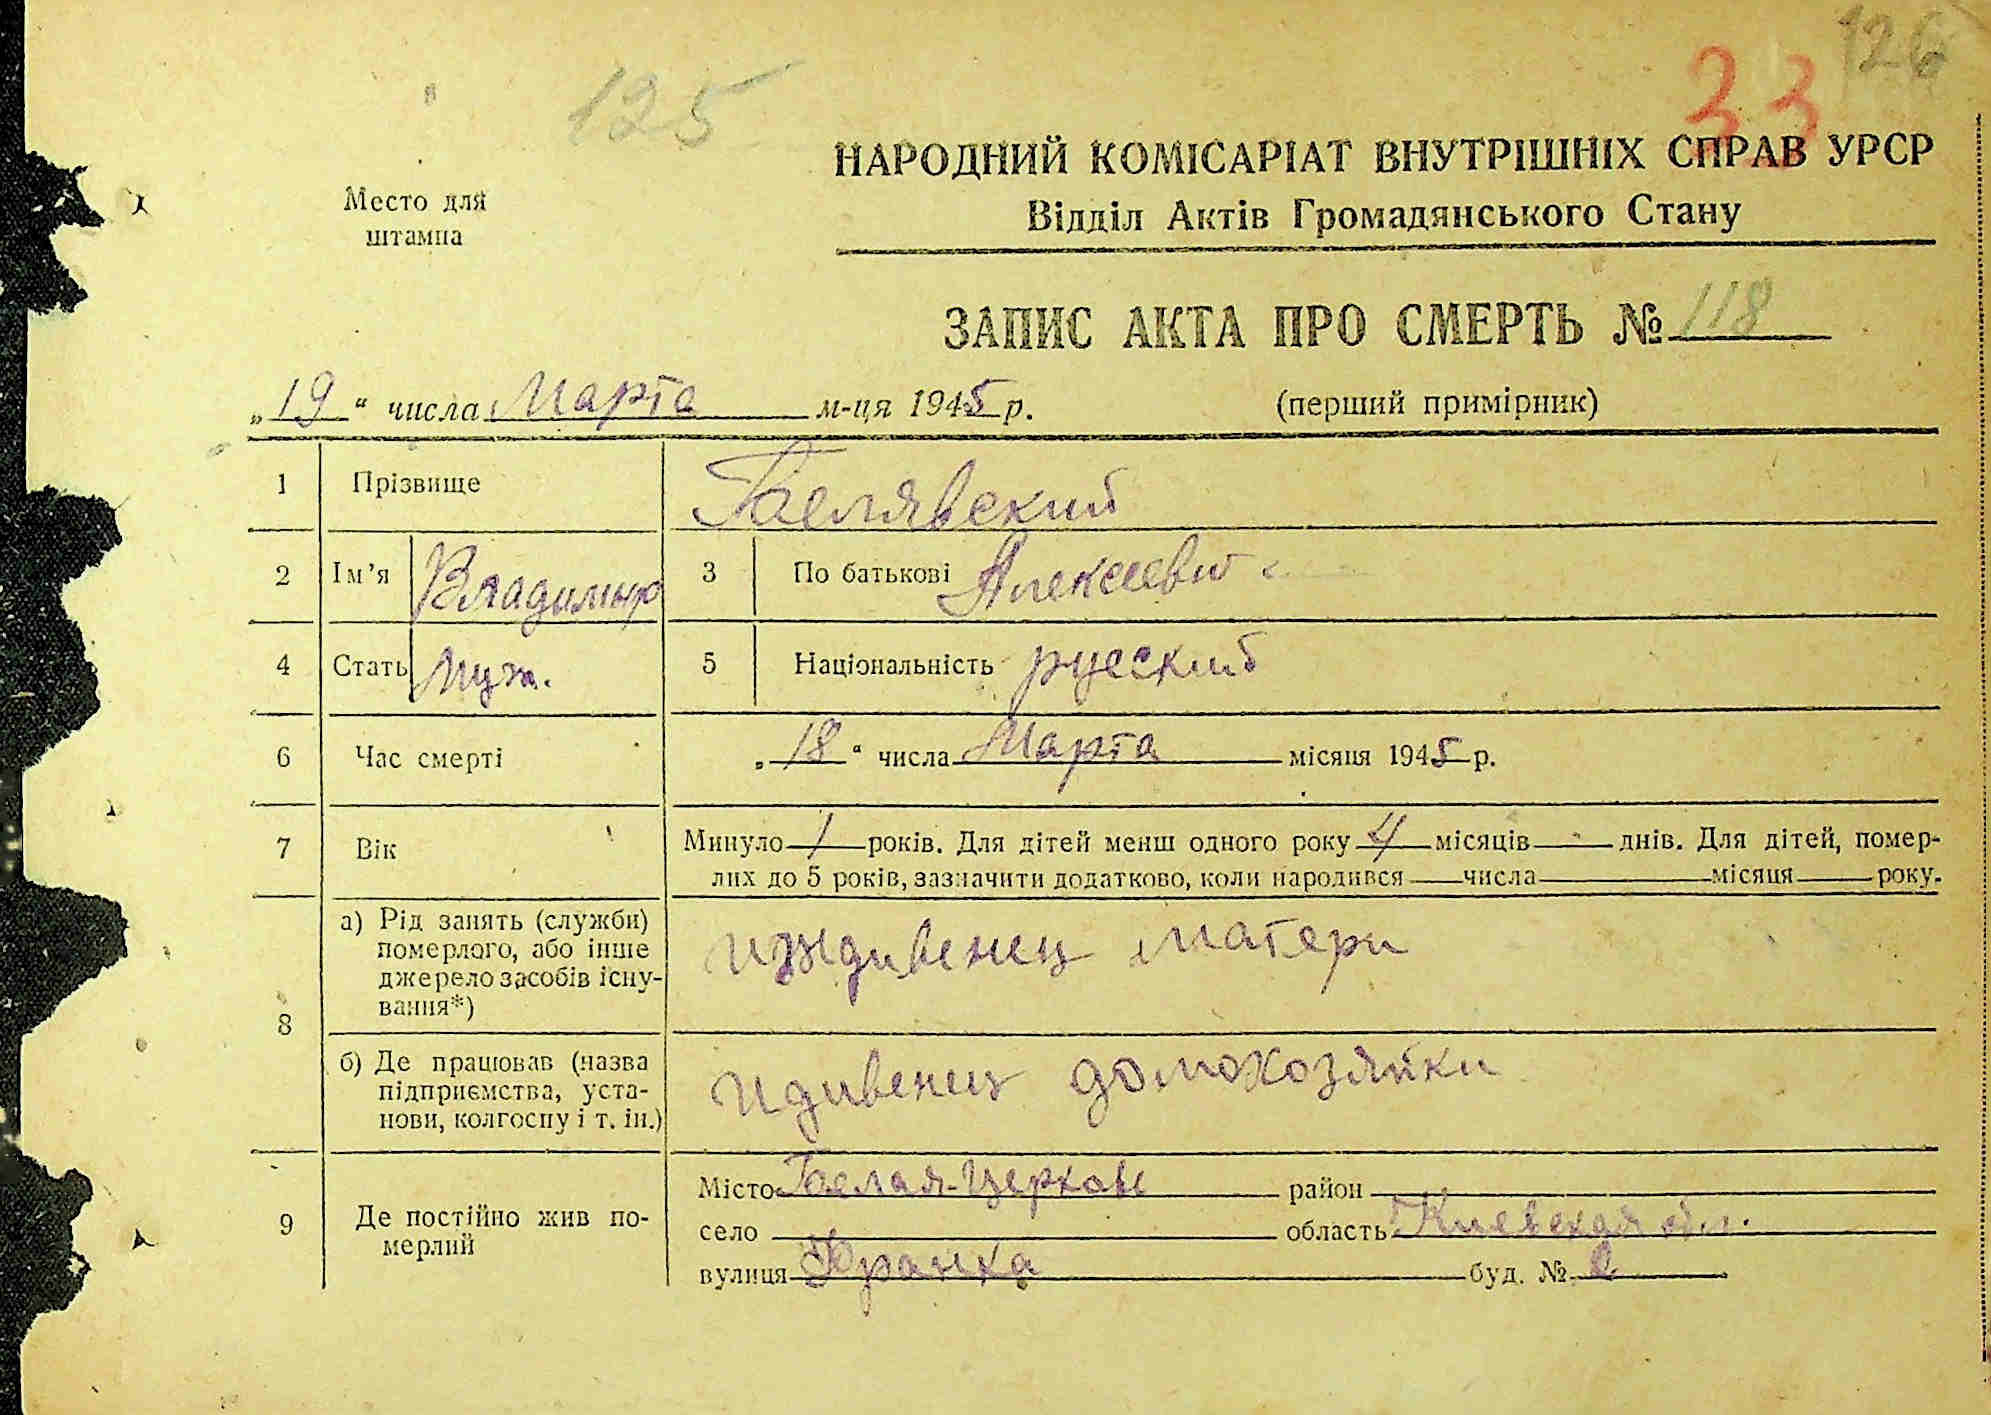 125
33 126
НАРОДНИЙ КОМІСАРІАТ ВНУТРІШНІХ СПРАВ УРСР
Відділ Актів Громадянського Стану
Место для
штампа
ЗАПИС АКТА ПРО СМЕРТЬ № 118
„19“ числа Марта м-ця 1945 р. (перший примірник)
1 Прізвище Белявский
2 Ім’я Владимир 3 По батькові Алексеевич
4 Стать Муж. 5 Національність русский
6 Час смерті „18“ числа Марта місяця 1945 р.
7 Вік Минуло 1 років. Для дітей менш одного року 4 місяців - днів. Для дітей, помер-
лих до 5 років, зазначити додатково, коли народився числа місяця року.
8 а) Рід занять (служби)
померлого, або інше
джерело засобів існу-
вання*)
иждивенец матери
б) Де працював (назва
підприємства, уста-
нови, колгоспу і т. ін.)
идивенец домохозяйки
9 Де постійно жив по-
мерлий
Місто Белая-Церковь район
село область Киевская обл.
вулиця Франка буд. № 2